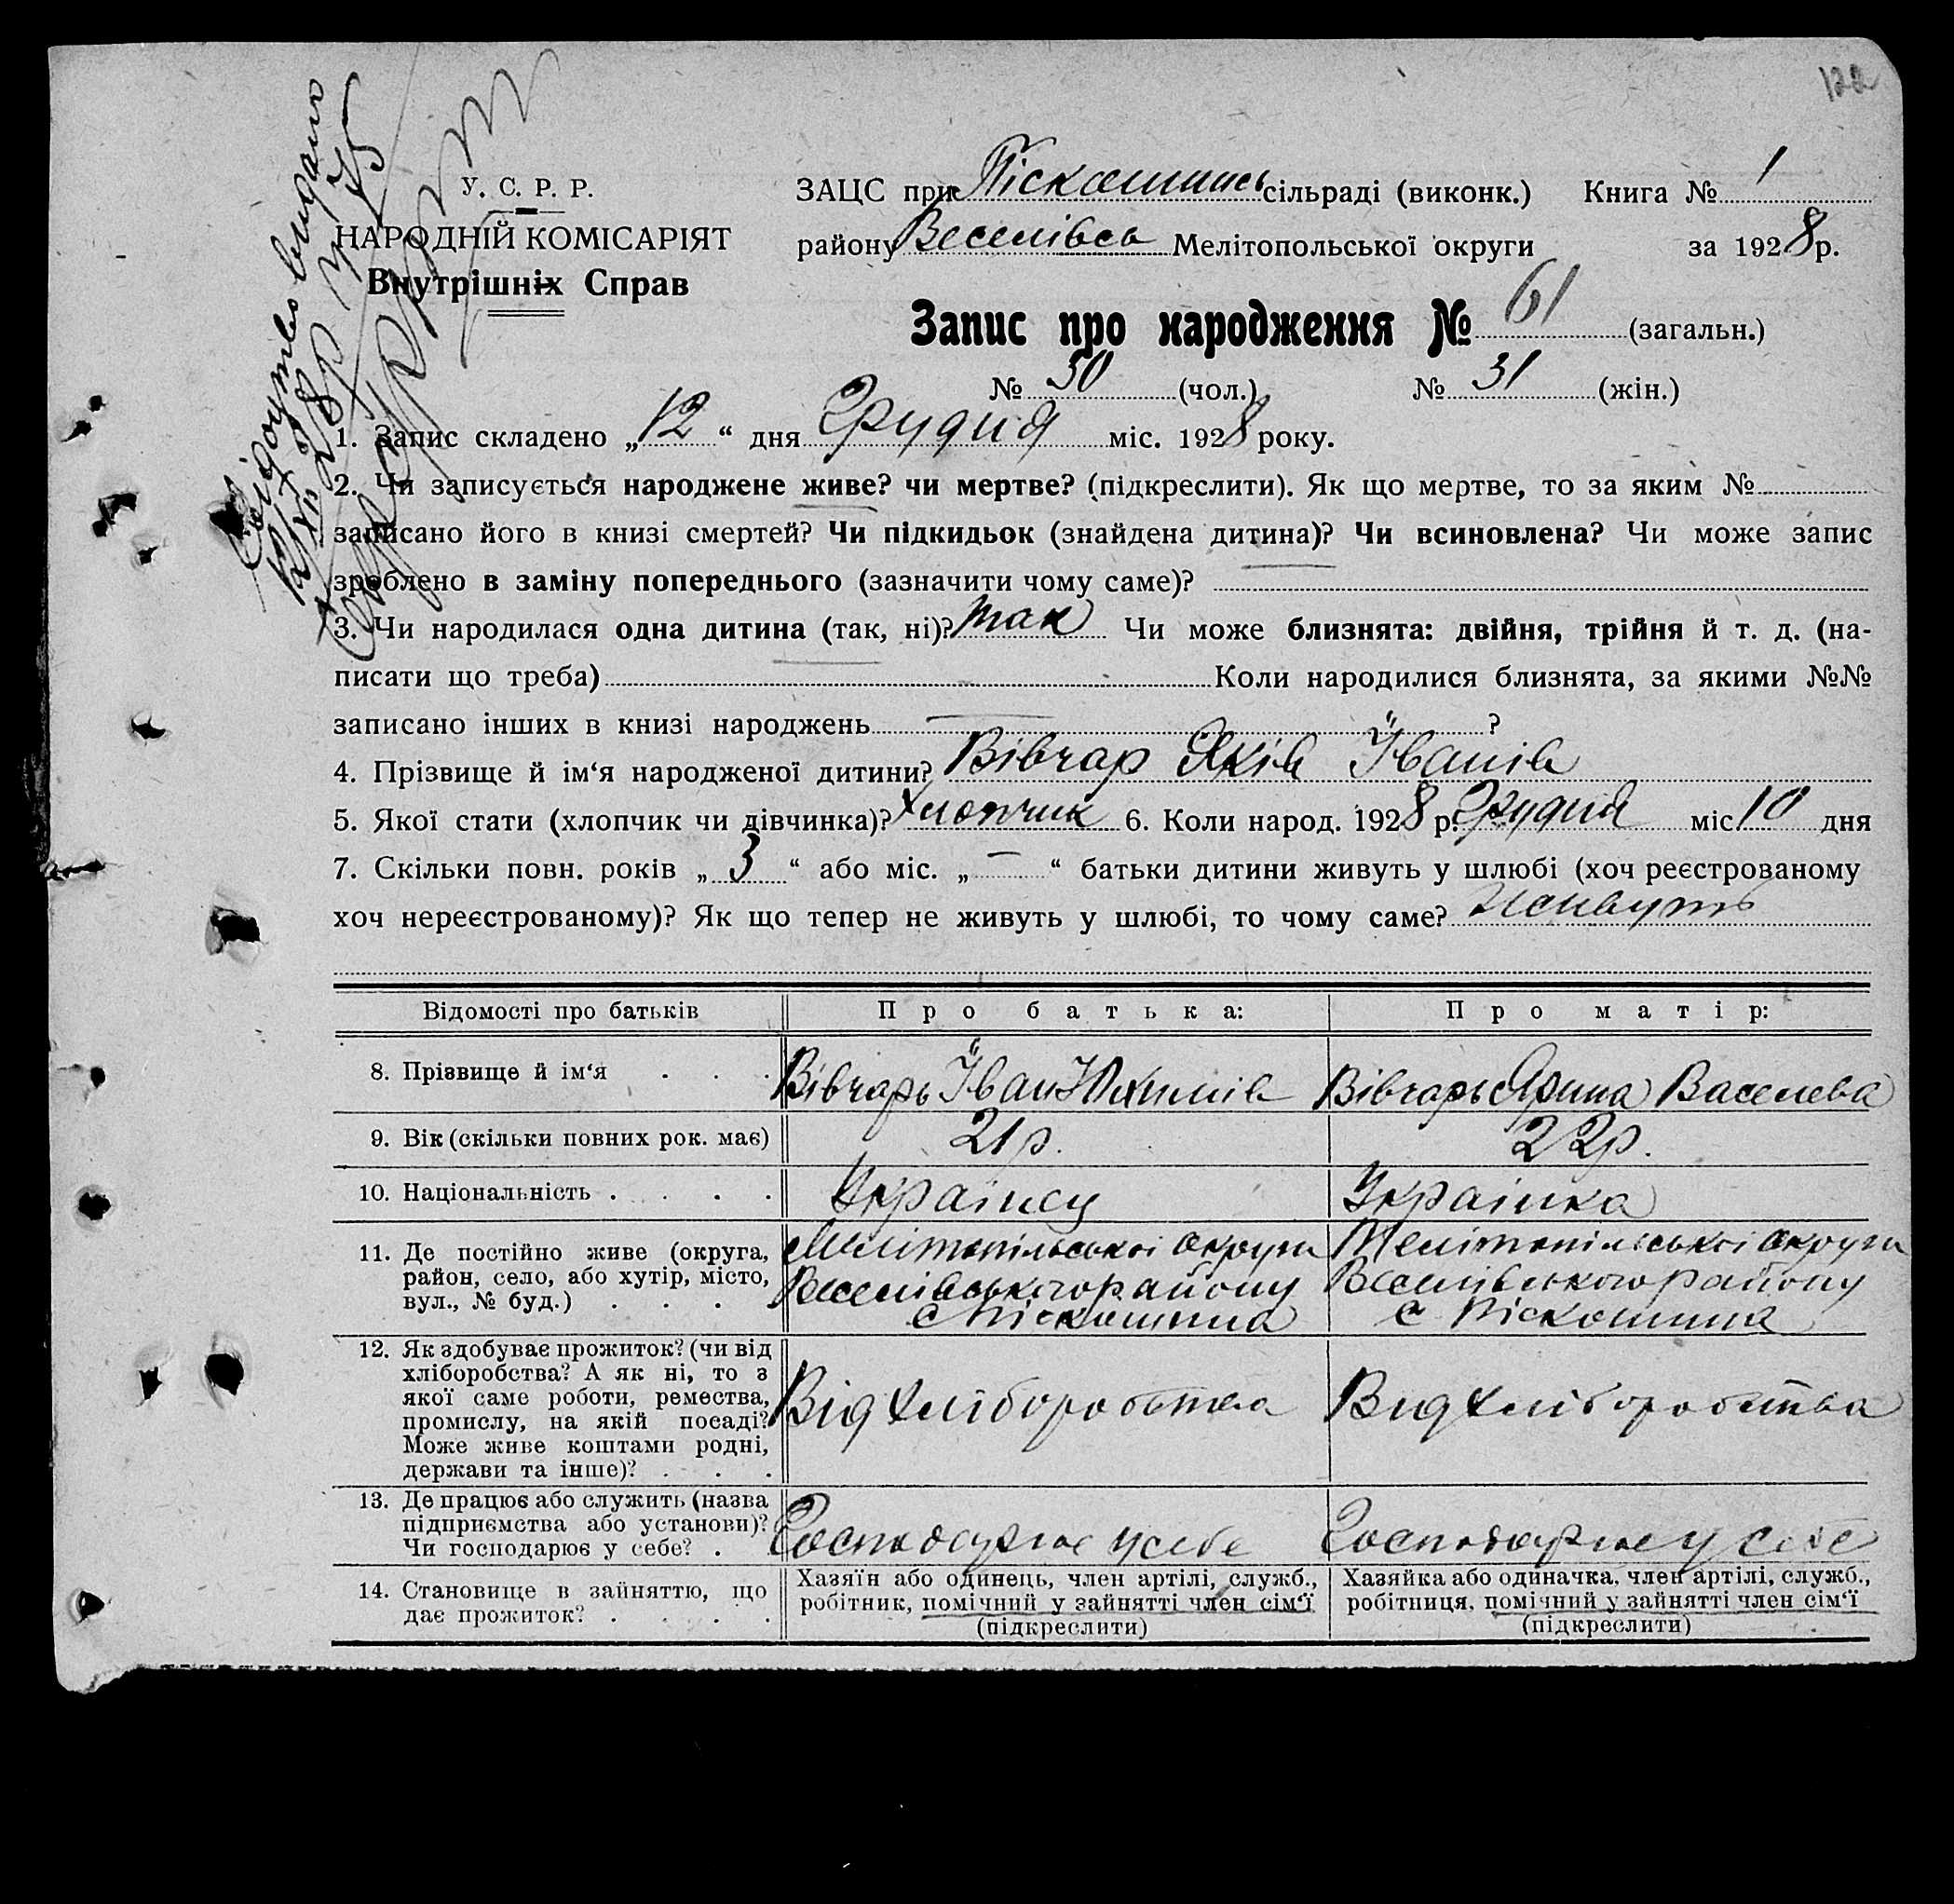 122
Свідоцтво видано
12/XII 28 р № 75
У. С. Р. Р.
НАРОДНІЙ КОМІСАРІЯТ
Внутрішніх Справ
ЗАЦС при Піскошинсь сільраді (виконк.) Книга № 1
району Веселівсь Мелітопольської округи за 1928 р.
Запис про народження № 61 (загальн.)
№ 30 (чол.) № 31 (жін.)
1. Запис складено „12“ дня Грудня міс. 1928 року.
2. Чи записується народжене живе? чи мертве? (підкреслити). Як що мертве, то за яким №
записано його в книзі смертей? Чи підкидьок (знайдена дитина)? Чи всиновлена? Чи може запис
зроблено в заміну попереднього (зазначити чому саме)?
3. Чи народилася одна дитина (так, ні)? так Чи може близнята: двійня, трійня й т. д. (на-
писати що треба) Коли народилися близнята, за якими №№
записано інших в книзі народжень ?
4. Прізвище й ім‘я народженої дитини? Вівчар Яків Їванів
5. Якої стати (хлопчик чи дівчинка)? Хлопчик 6. Коли народ. 1928 р. Грудня міс 10 дня
7. Скільки повн. років „3“ або міс. „—“ батьки дитини живуть у шлюбі (хоч реєстрованому
хоч нереєстрованому)? Як що тепер не живуть у шлюбі, то чому саме?
Відомості про батьків Про батька: Про матір:
8. Прізвище й ім‘я . . . Вівчарь Їван Юхимів Вівчарь Ярина Васелева
9. Вік (скільки повних рок. має) 21 р. 22 р.
10. Національність . . . . Українец Українка
11. Де постійно живе (округа, Мелітопільської округи Мелітопільської округи
район, село, або хутір, місто, Веселівського району Веселівського району
вул., № буд.) . . . . с Піскошина с Піскошина
12. Як здобуває прожиток? (чи від
хліборобства? А як ні, то з
якої саме роботи, ремества, Від хліборобства Вид хліборобства
промислу, на якій посаді?
Може живе коштами родні,
держави та інше)? . . .
13. Де працює або служить (назва
підприємства або установи)? Господарює у себе Господарює у себе
Чи господарює у себе? . .
14. Становище в зайняттю, що Хазяїн або одинець, член артілі, служб., Хазяйка або одиначка, член артілі, служб.,
дає прожиток? . . . . робітник, помічний у зайнятті член сім‘ї робітниця, помічний у зайнятті член сім‘ї
(підкреслити) (підкреслити)